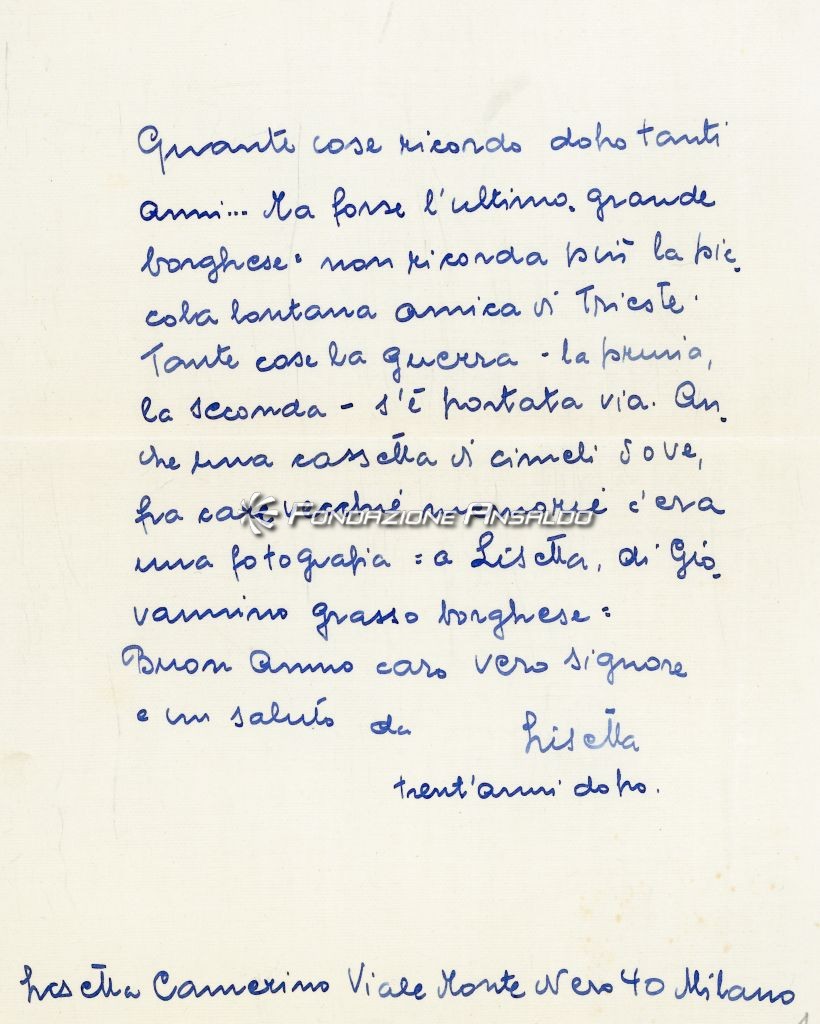 Quante cose ricordo dopo tanti
anni... Ma forse l'ultimo "grande
borghese" non ricorda più la pic-
cola lontana amica di Trieste.
Tante cose la guerra - la prima,
la seconda - s'è portata via. An-
che una cassetta di cimeli dove,
fra care vecchie memorie c'era
FONDAZIONE ANSALDO
una fotografia "a Lisetta, di Gio-
vannino grasso borghese"
Buon Anno caro vero signore
e un saluto da Lisetta
trent'anni dopo.
Lisetta Camerino Viale Monte Nero 40 Milano